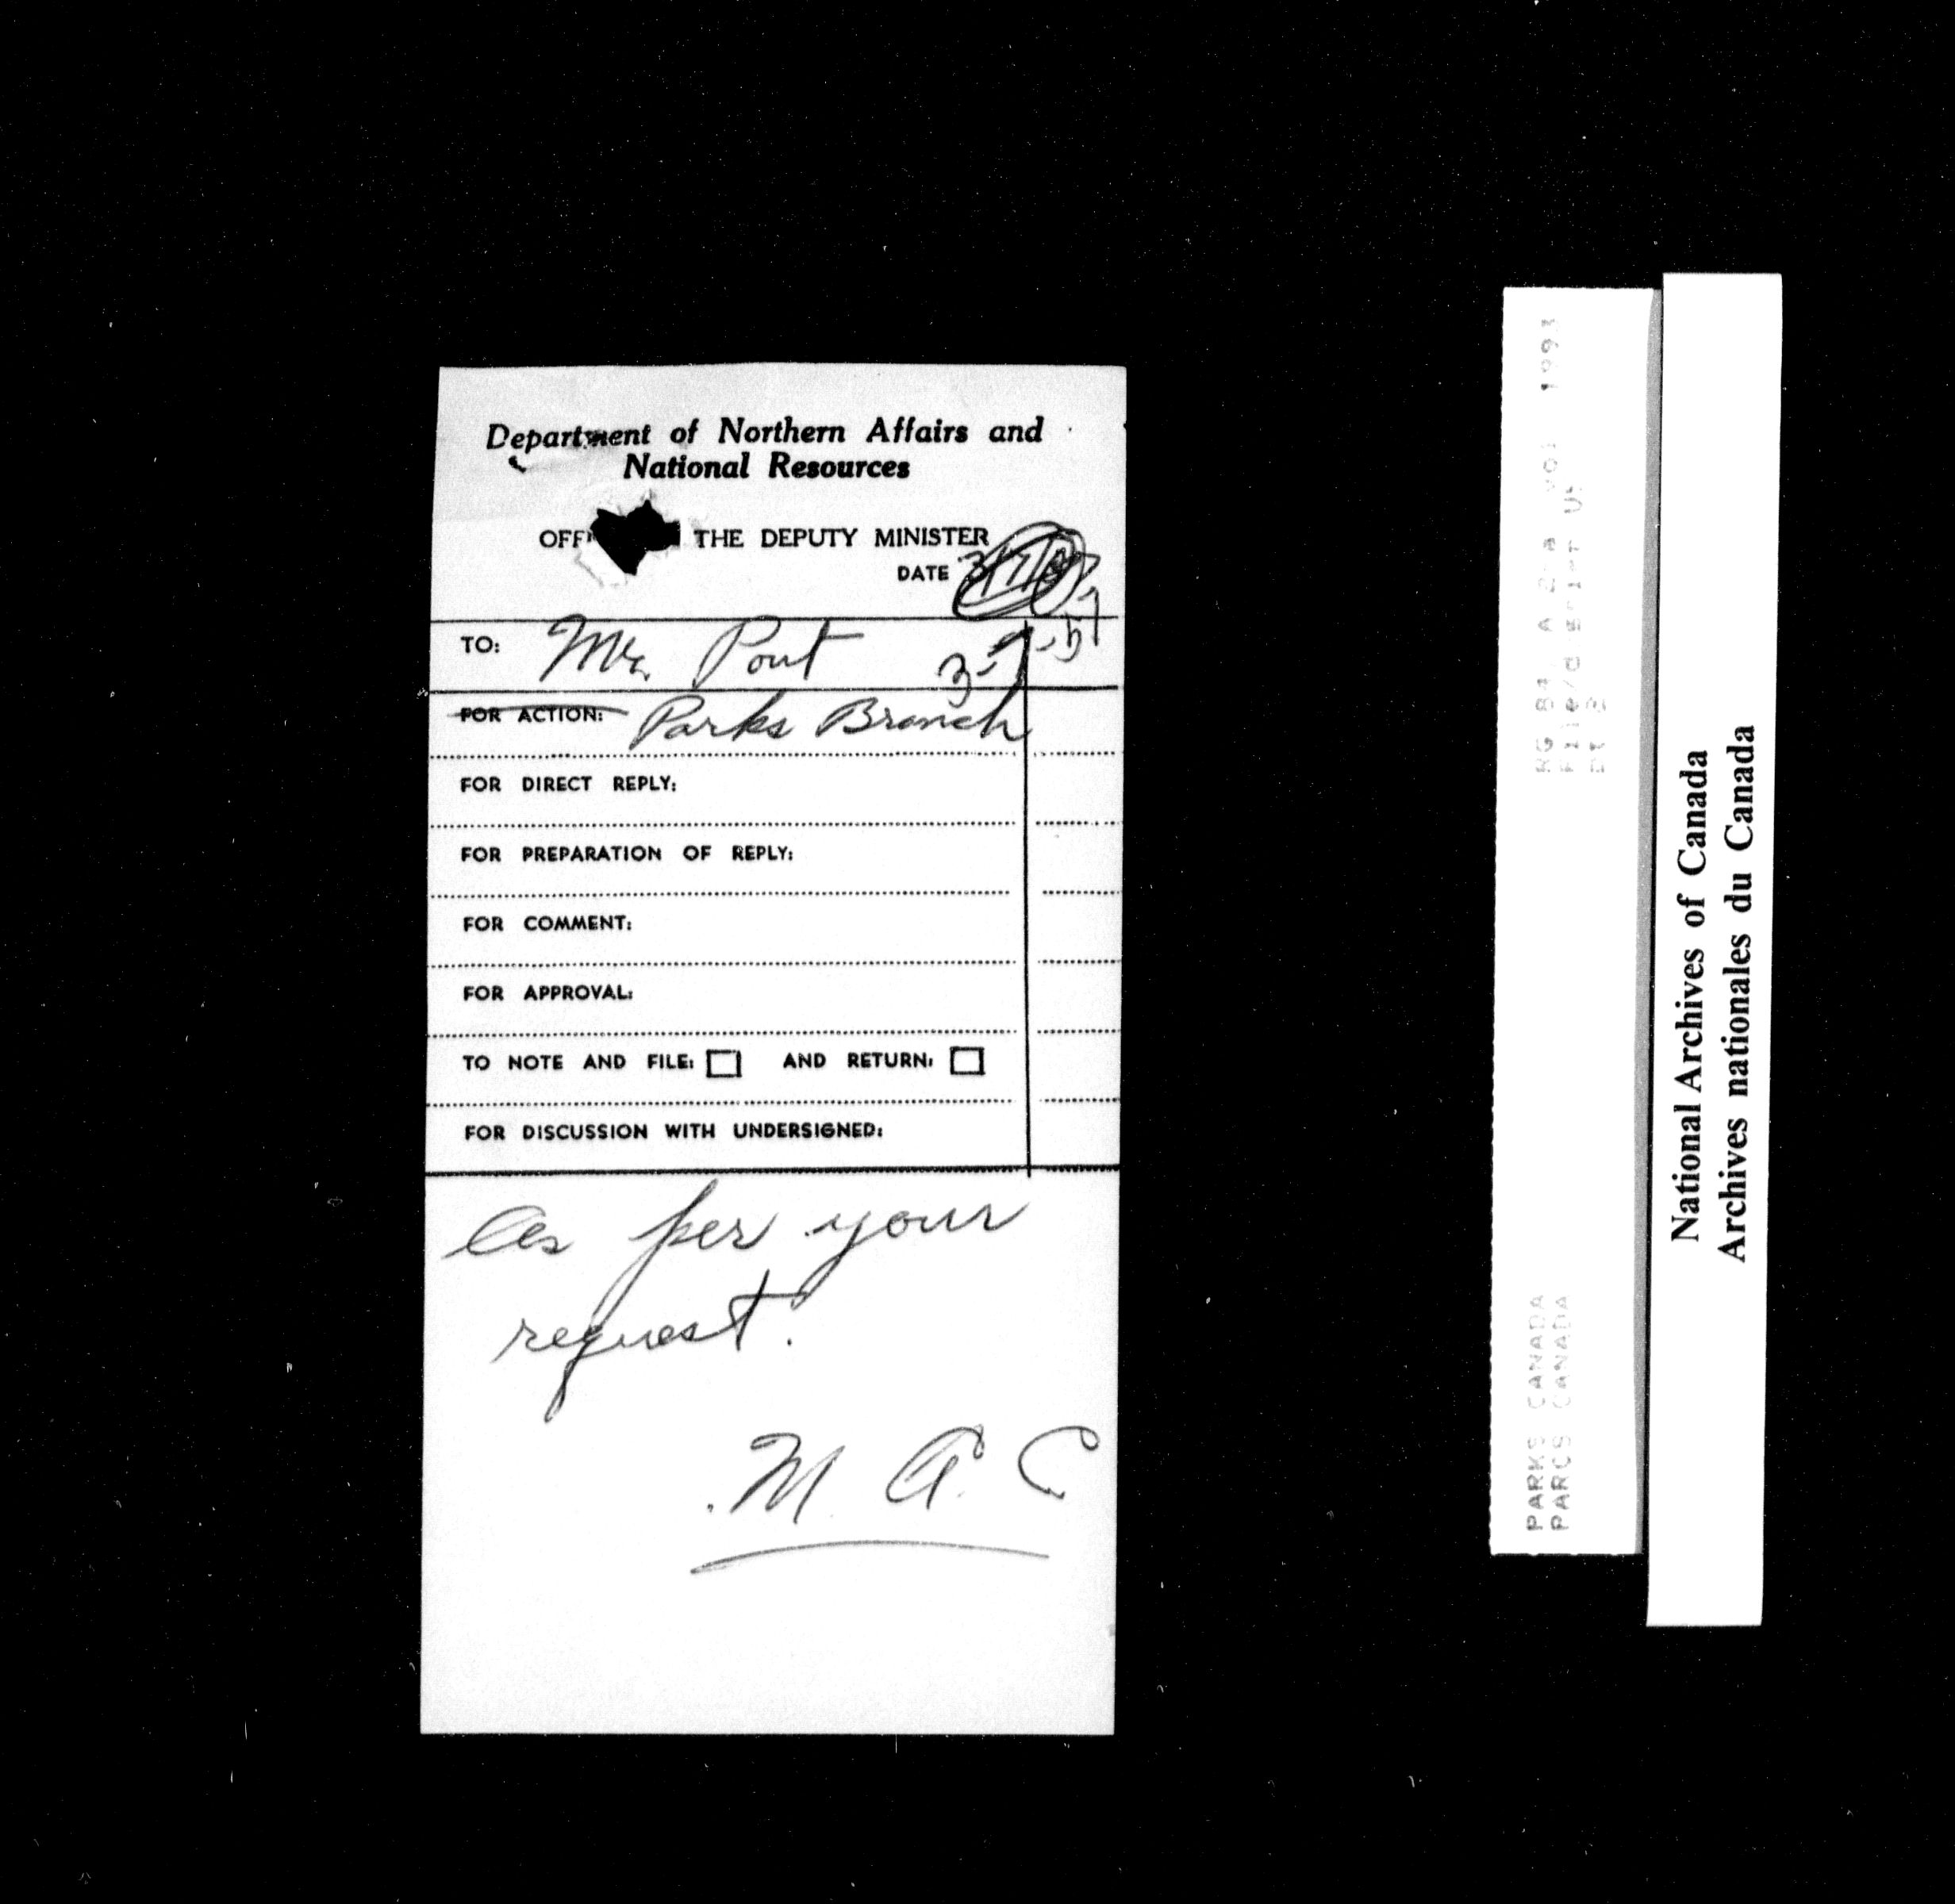 Department of Northern Affairs and
National Resources
THE DEPUTY MINISTER
DATE
3-7-57
TO: Mr. Pout
FOR ACTION: Parks Branch
FOR DIRECT REPLY:
FOR PREPARATION OF REPLY:
FOR COMMENT:
FOR APPROVAL:
TO NOTE AND FILE: AND RETURN:
FOR DISCUSSION WITH UNDERSIGNED:
As per your
request.
M. A. C
PARKS CANADA
PARCS CANADA
RG 84 A 2 a vol 1993
National Archives of Canada
Archives nationales du Canada